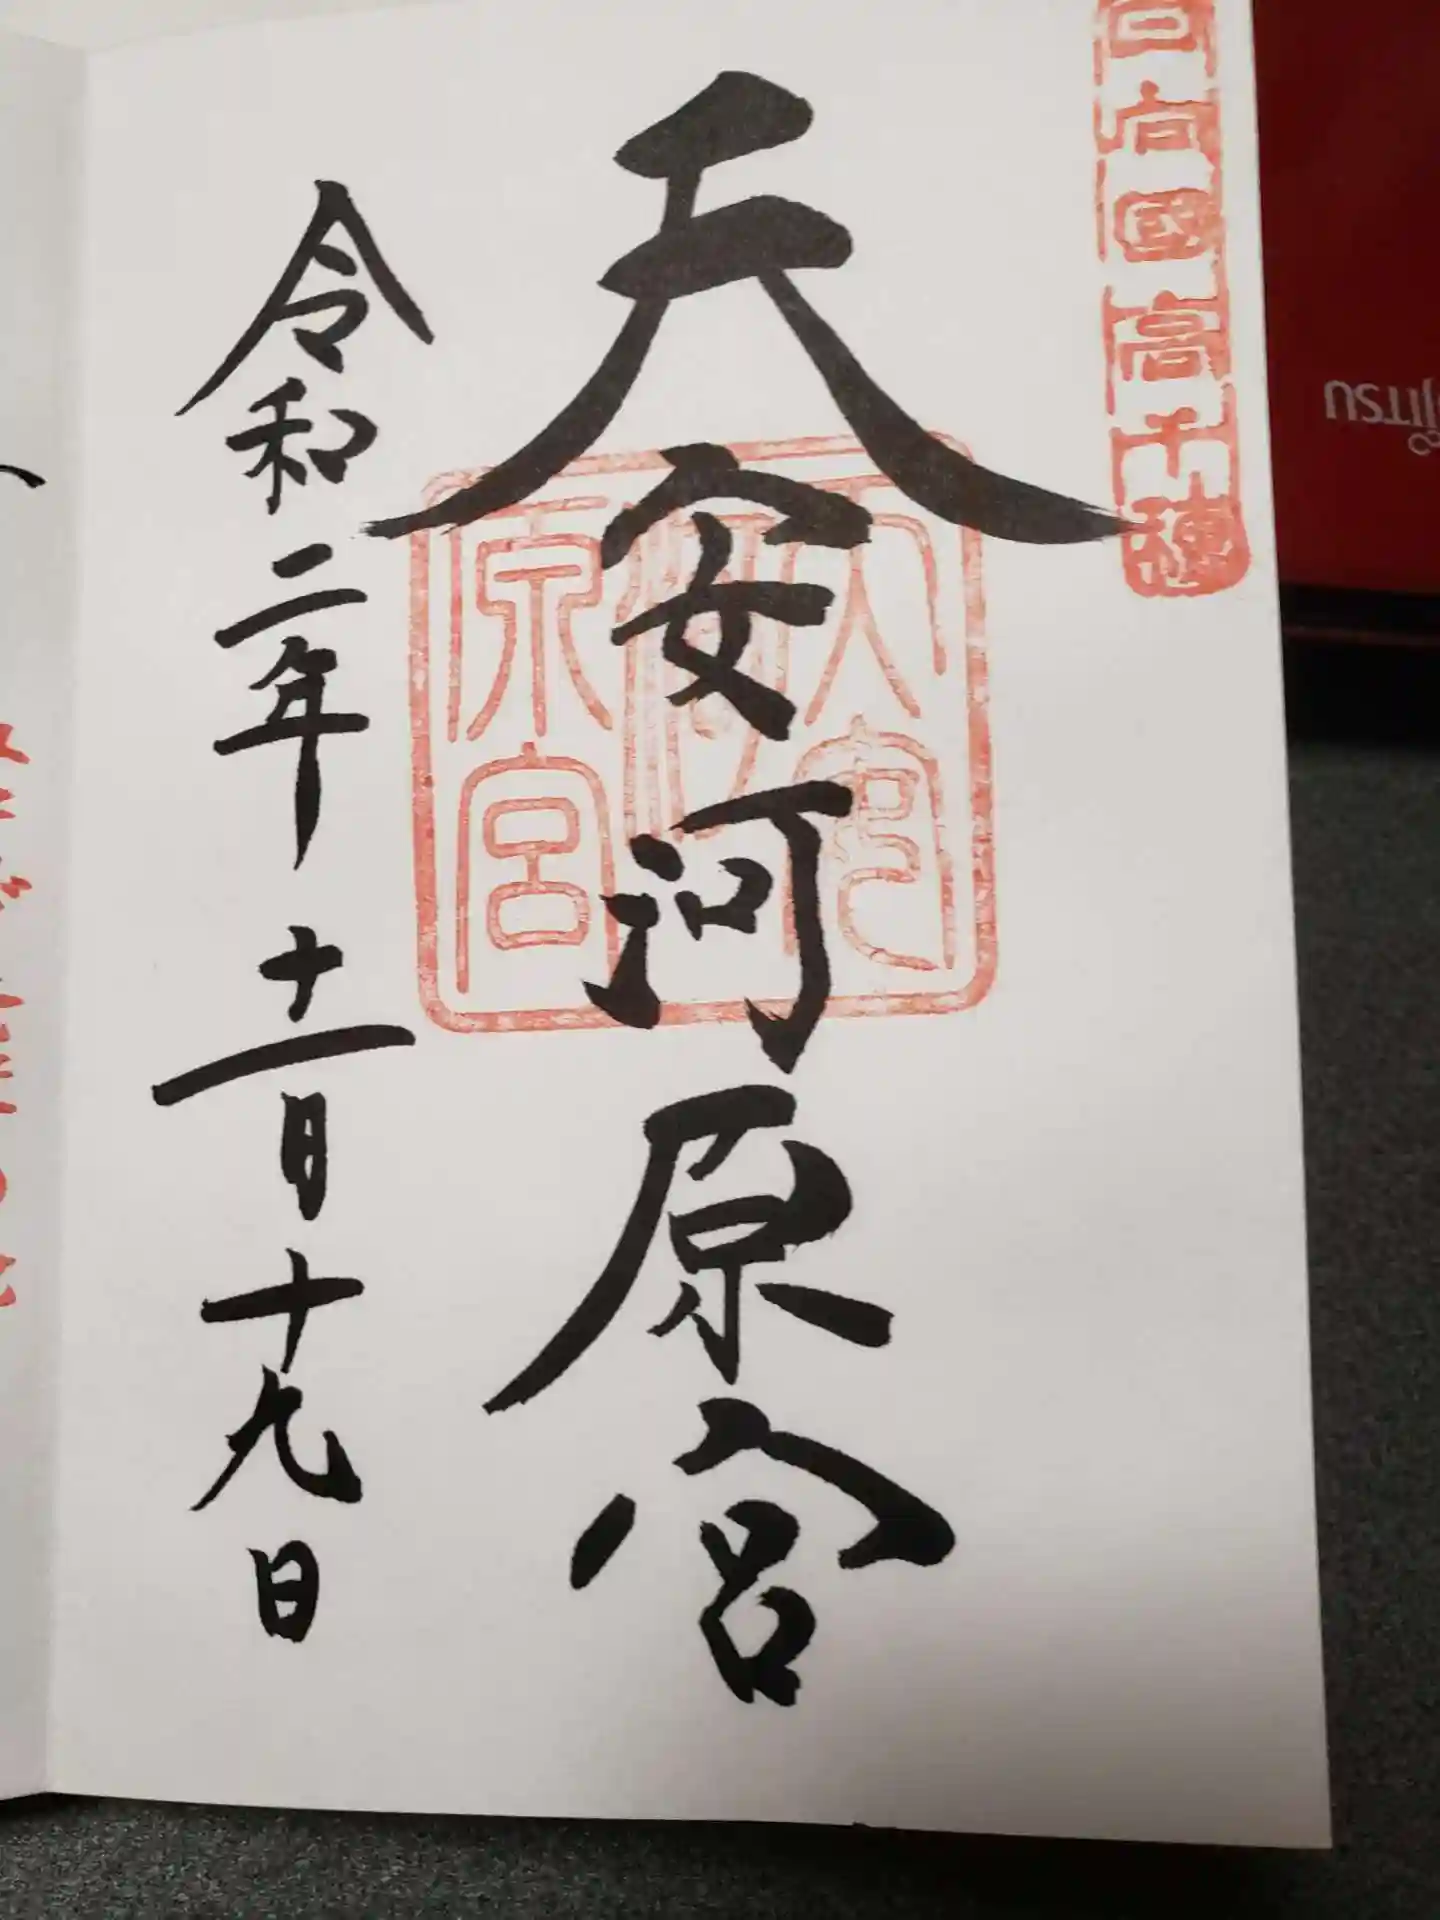 日向國高千穗
天安河原宮
天安河原宮
令和二年十一月十九日
JITSU